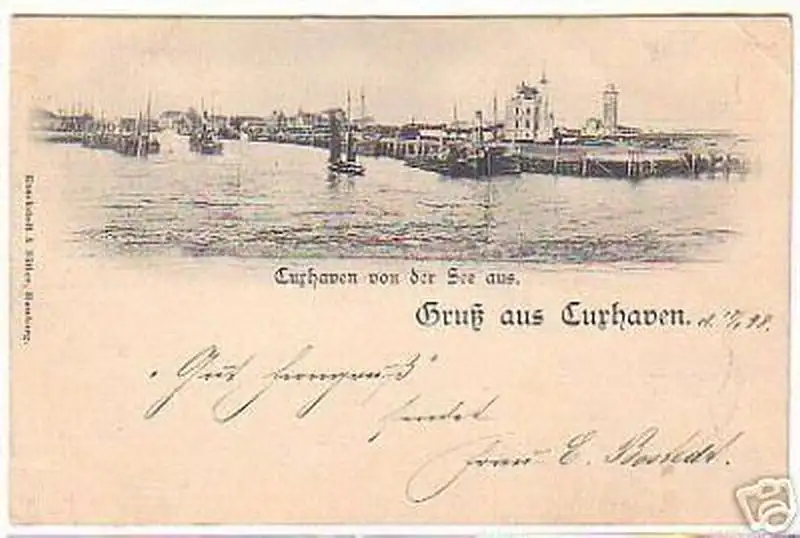 Cuxhaven von der See aus.
Gruß aus Cuxhaven. d. 98.
"Gut
sendet
Frau C.
& Hamburg.